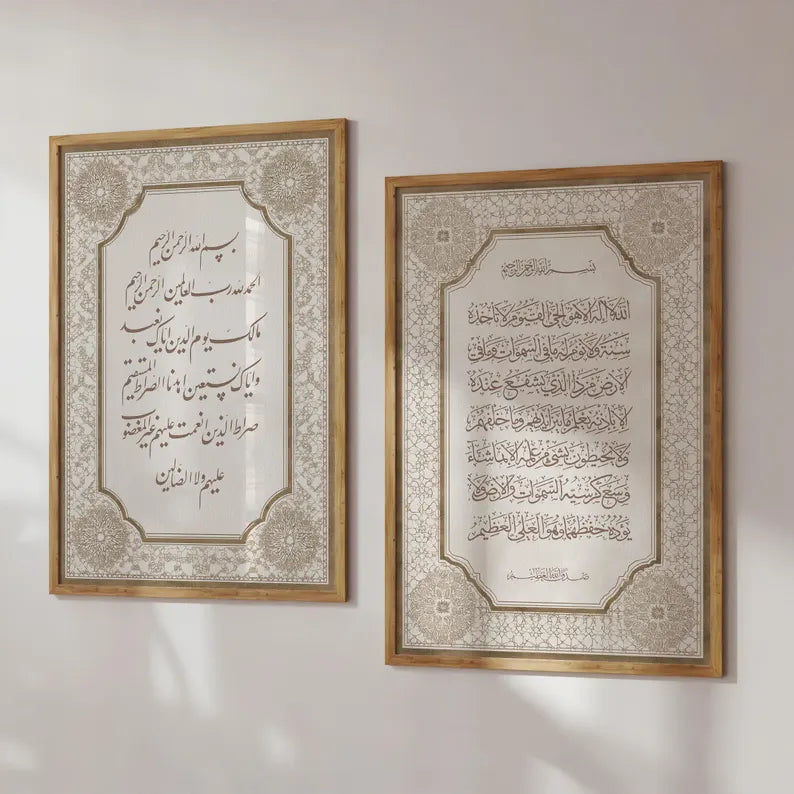 بسم الله الرحمن الرحيم
الحمد لله رب العالمين الرحمن الرحيم
مالك يوم الدين اياك نعبد
واياك نستعين اهدنا الصراط المستقيم
صراط الذين انعمت عليهم غير المغضوب
عليهم ولا الضالين
بسم الله الرحمن الرحيم
الله لا اله الا هو الحي القيوم لا تاخذه
سنة ولا نوم له ما في السموات وما في
الارض من ذا الذي يشفع عنده
الا باذنه يعلم ما بين ايديهم وما خلفهم
ولا يحيطون بشيء من علمه الا بما شاء
وسع كرسيه السموات والارض ولا
يوده حفظهما وهو العلي العظيم
صدق الله العظيم